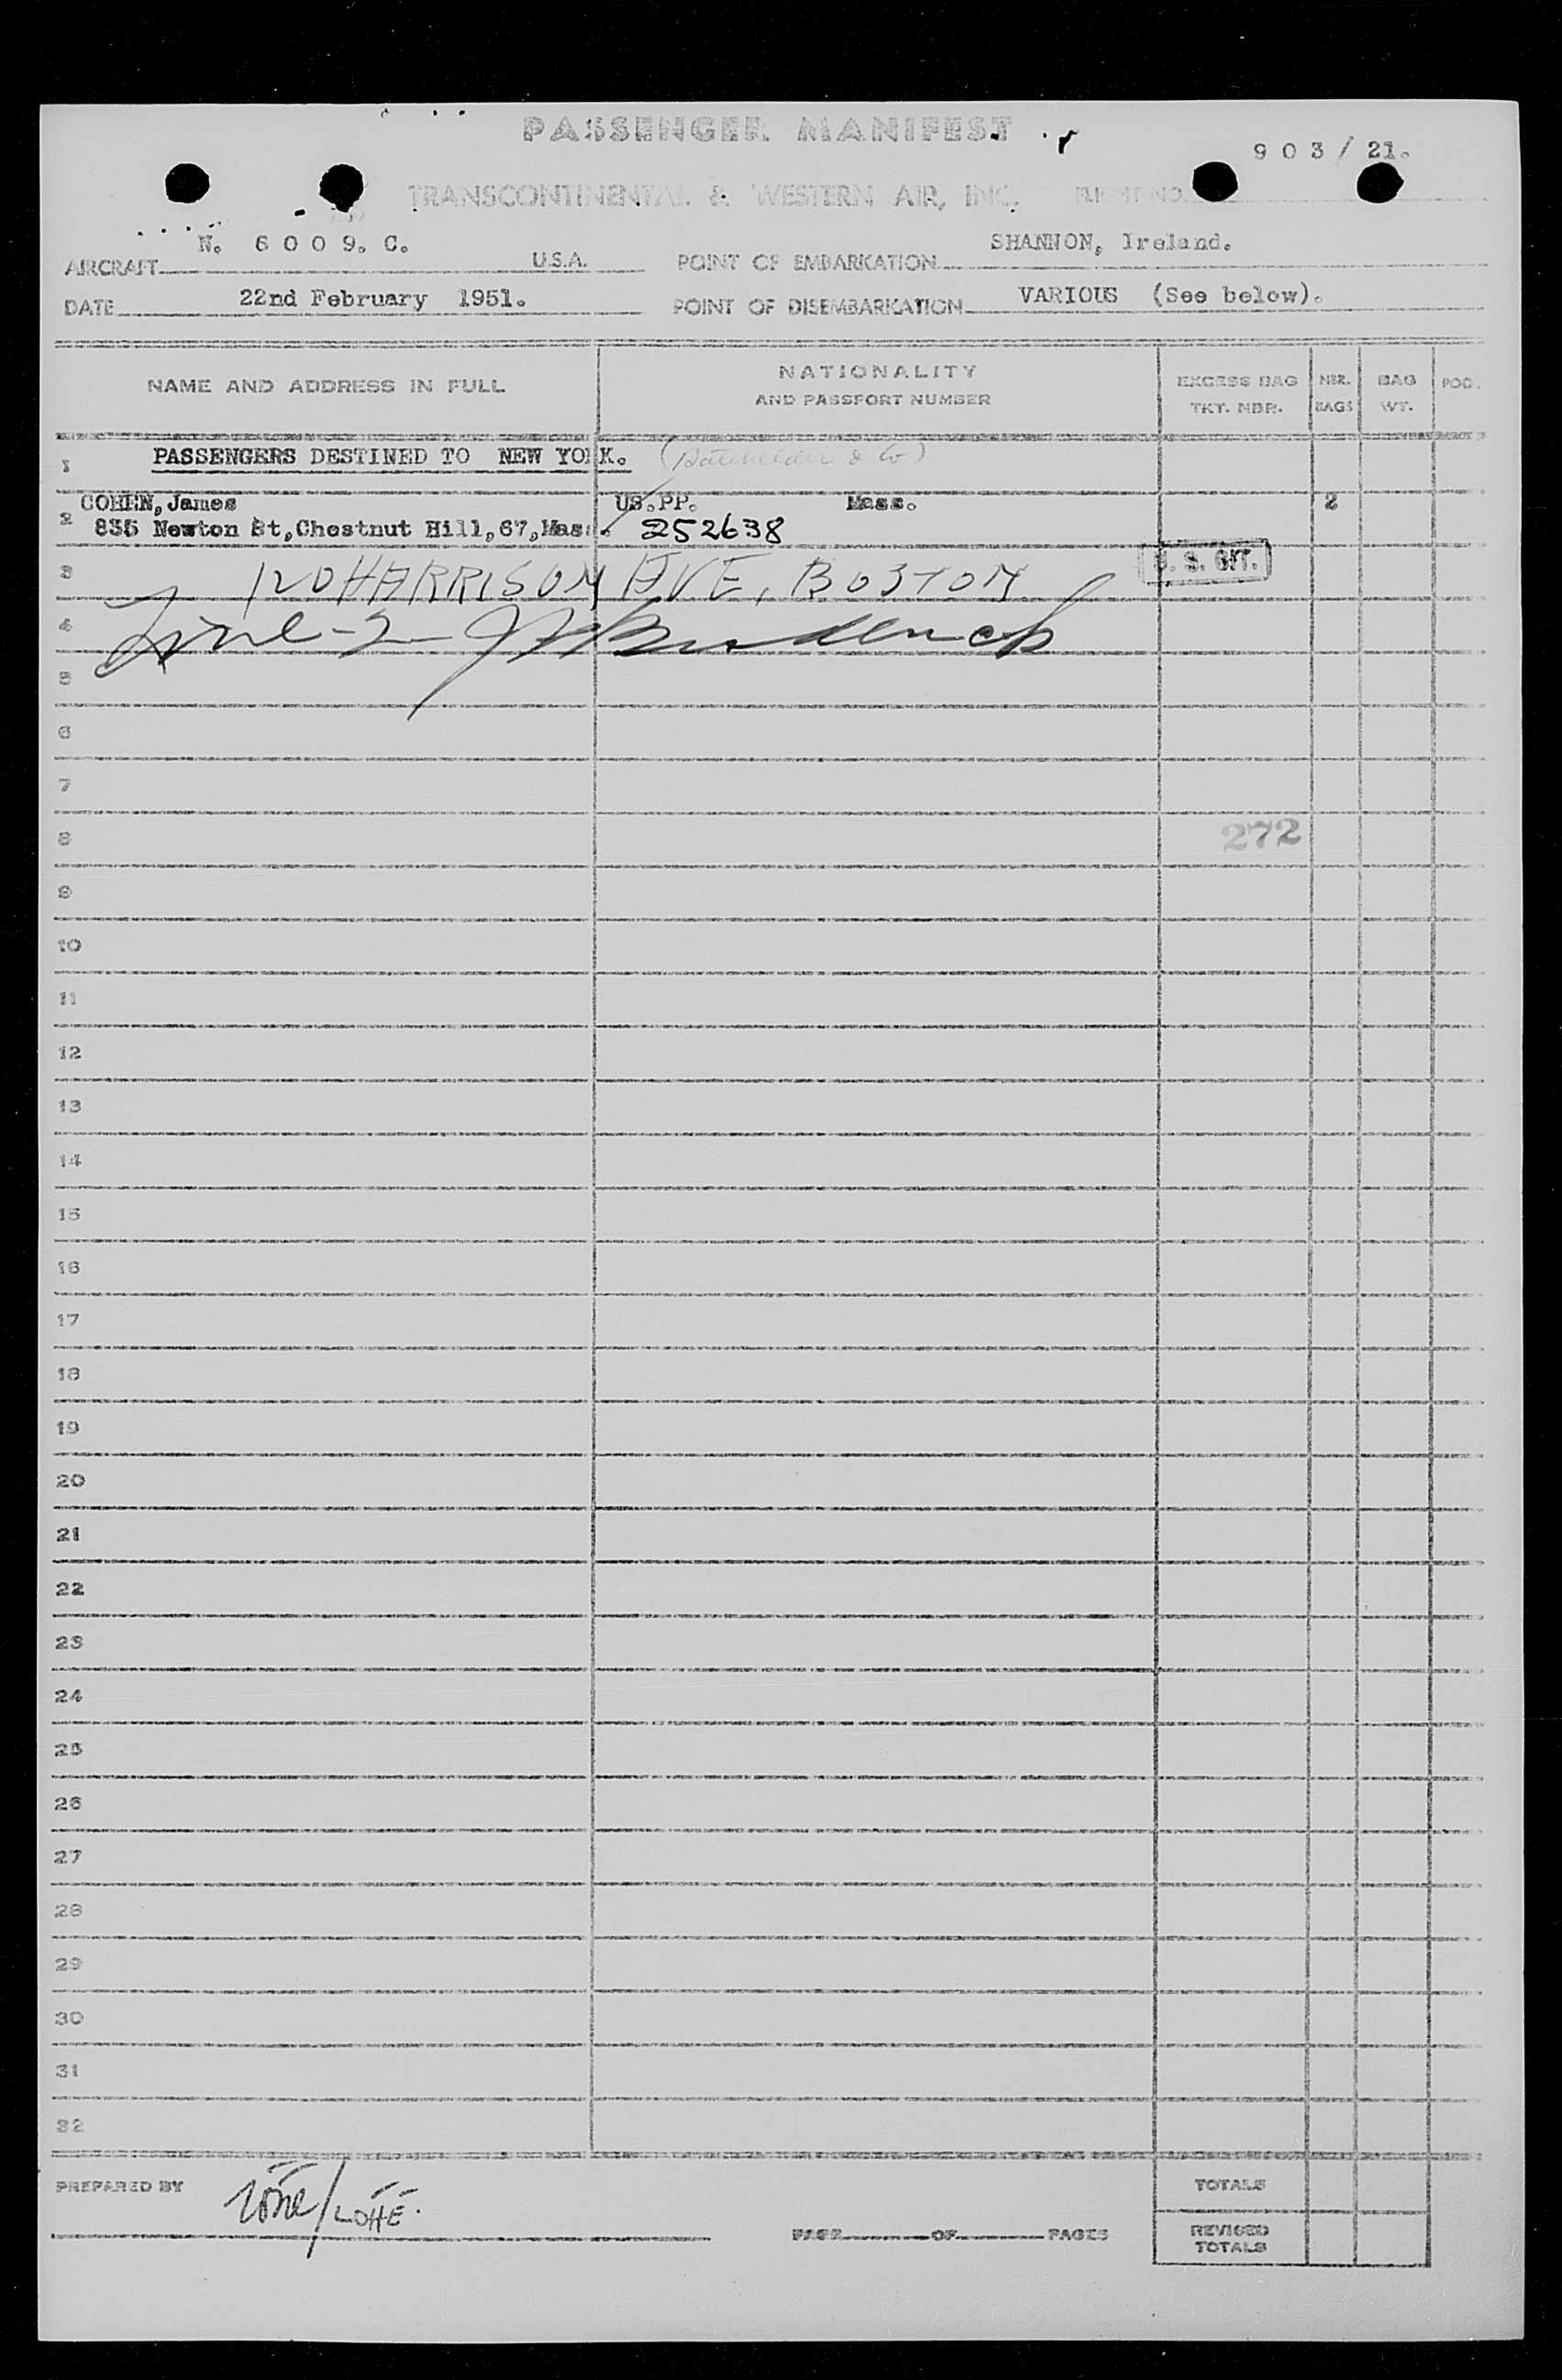 PASSENGER MANIFEST
903/21.
TRANSCONTINENTAL & WESTERN AIR, INC. FLIGHT NO.
AIRCRAFT N. 6009. C. U.S.A. POINT OF EMBARKATION SHANNON, Ireland.
DATE 22nd February 1951. POINT OF DISEMBARKATION VARIOUS (See below).
NAME AND ADDRESS IN FULL
NATIONALITY
AND PASSPORT NUMBER
EXCESS BAG
TKT. NBR.
NBR.
BAGS
BAG
WT.
POD.
1 PASSENGERS DESTINED TO NEW YORK. (Batchelder & Co)
2 COHEN, James US. PP. Mass. 2
835 Newton St, Chestnut Hill, 67, Mass. 252638
3 120 HARRISON AVE, BOSTON U. S. CIT.
4 Line-2
5
6
7
8 272
9
10
11
12
13
14
15
16
17
18
19
20
21
22
23
24
25
26
27
28
29
30
31
32
PREPARED BY
PAGE OF PAGES
TOTALS
REVISED
TOTALS